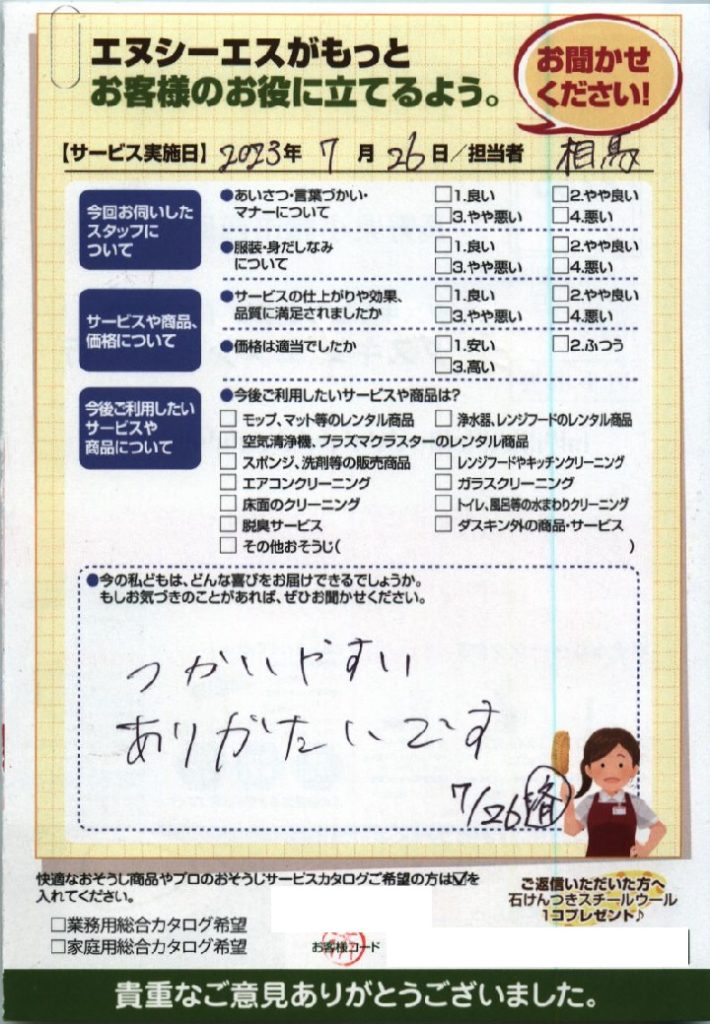 エヌシーエスがもっと
お客様のお役に立てるよう。
お聞かせ
ください!
【サービス実施日】2023年 7月 26日/担当者 相馬
今回お伺いした
スタッフに
ついて
●あいさつ・言葉づかい・
マナーについて
□1.良い □2.やや良い
□3.やや悪い □4.悪い
●服装・身だしなみ
について
□1.良い □2.やや良い
□3.やや悪い □4.悪い
サービスや商品、
価格について
●サービスの仕上がりや効果、
品質に満足されましたか
□1.良い □2.やや良い
□3.やや悪い □4.悪い
●価格は適当でしたか
□1.安い □2.ふつう
□3.高い
今後ご利用したい
サービスや
商品について
●今後ご利用したいサービスや商品は?
□ モップ、マット等のレンタル商品 □ 浄水器、レンジフードのレンタル商品
□ 空気清浄機、プラズマクラスターのレンタル商品
□ スポンジ、洗剤等の販売商品 □ レンジフードやキッチンクリーニング
□ エアコンクリーニング □ ガラスクリーニング
□ 床面のクリーニング □ トイレ、風呂等の水まわりクリーニング
□ 脱臭サービス □ ダスキン外の商品・サービス
□ その他おそうじ( )
●今の私どもは、どんな喜びをお届けできるでしょうか。
もしお気づきのことがあれば、ぜひお聞かせください。
つかいやすい
ありがたいです
7/26
快適なおそうじ商品やプロのおそうじサービスカタログご希望の方は☑を
入れてください。
□業務用総合カタログ希望
□家庭用総合カタログ希望
お客様コード
ご返信いただいた方へ
石けんつきスチールウール
1コプレゼント♪
貴重なご意見ありがとうございました。